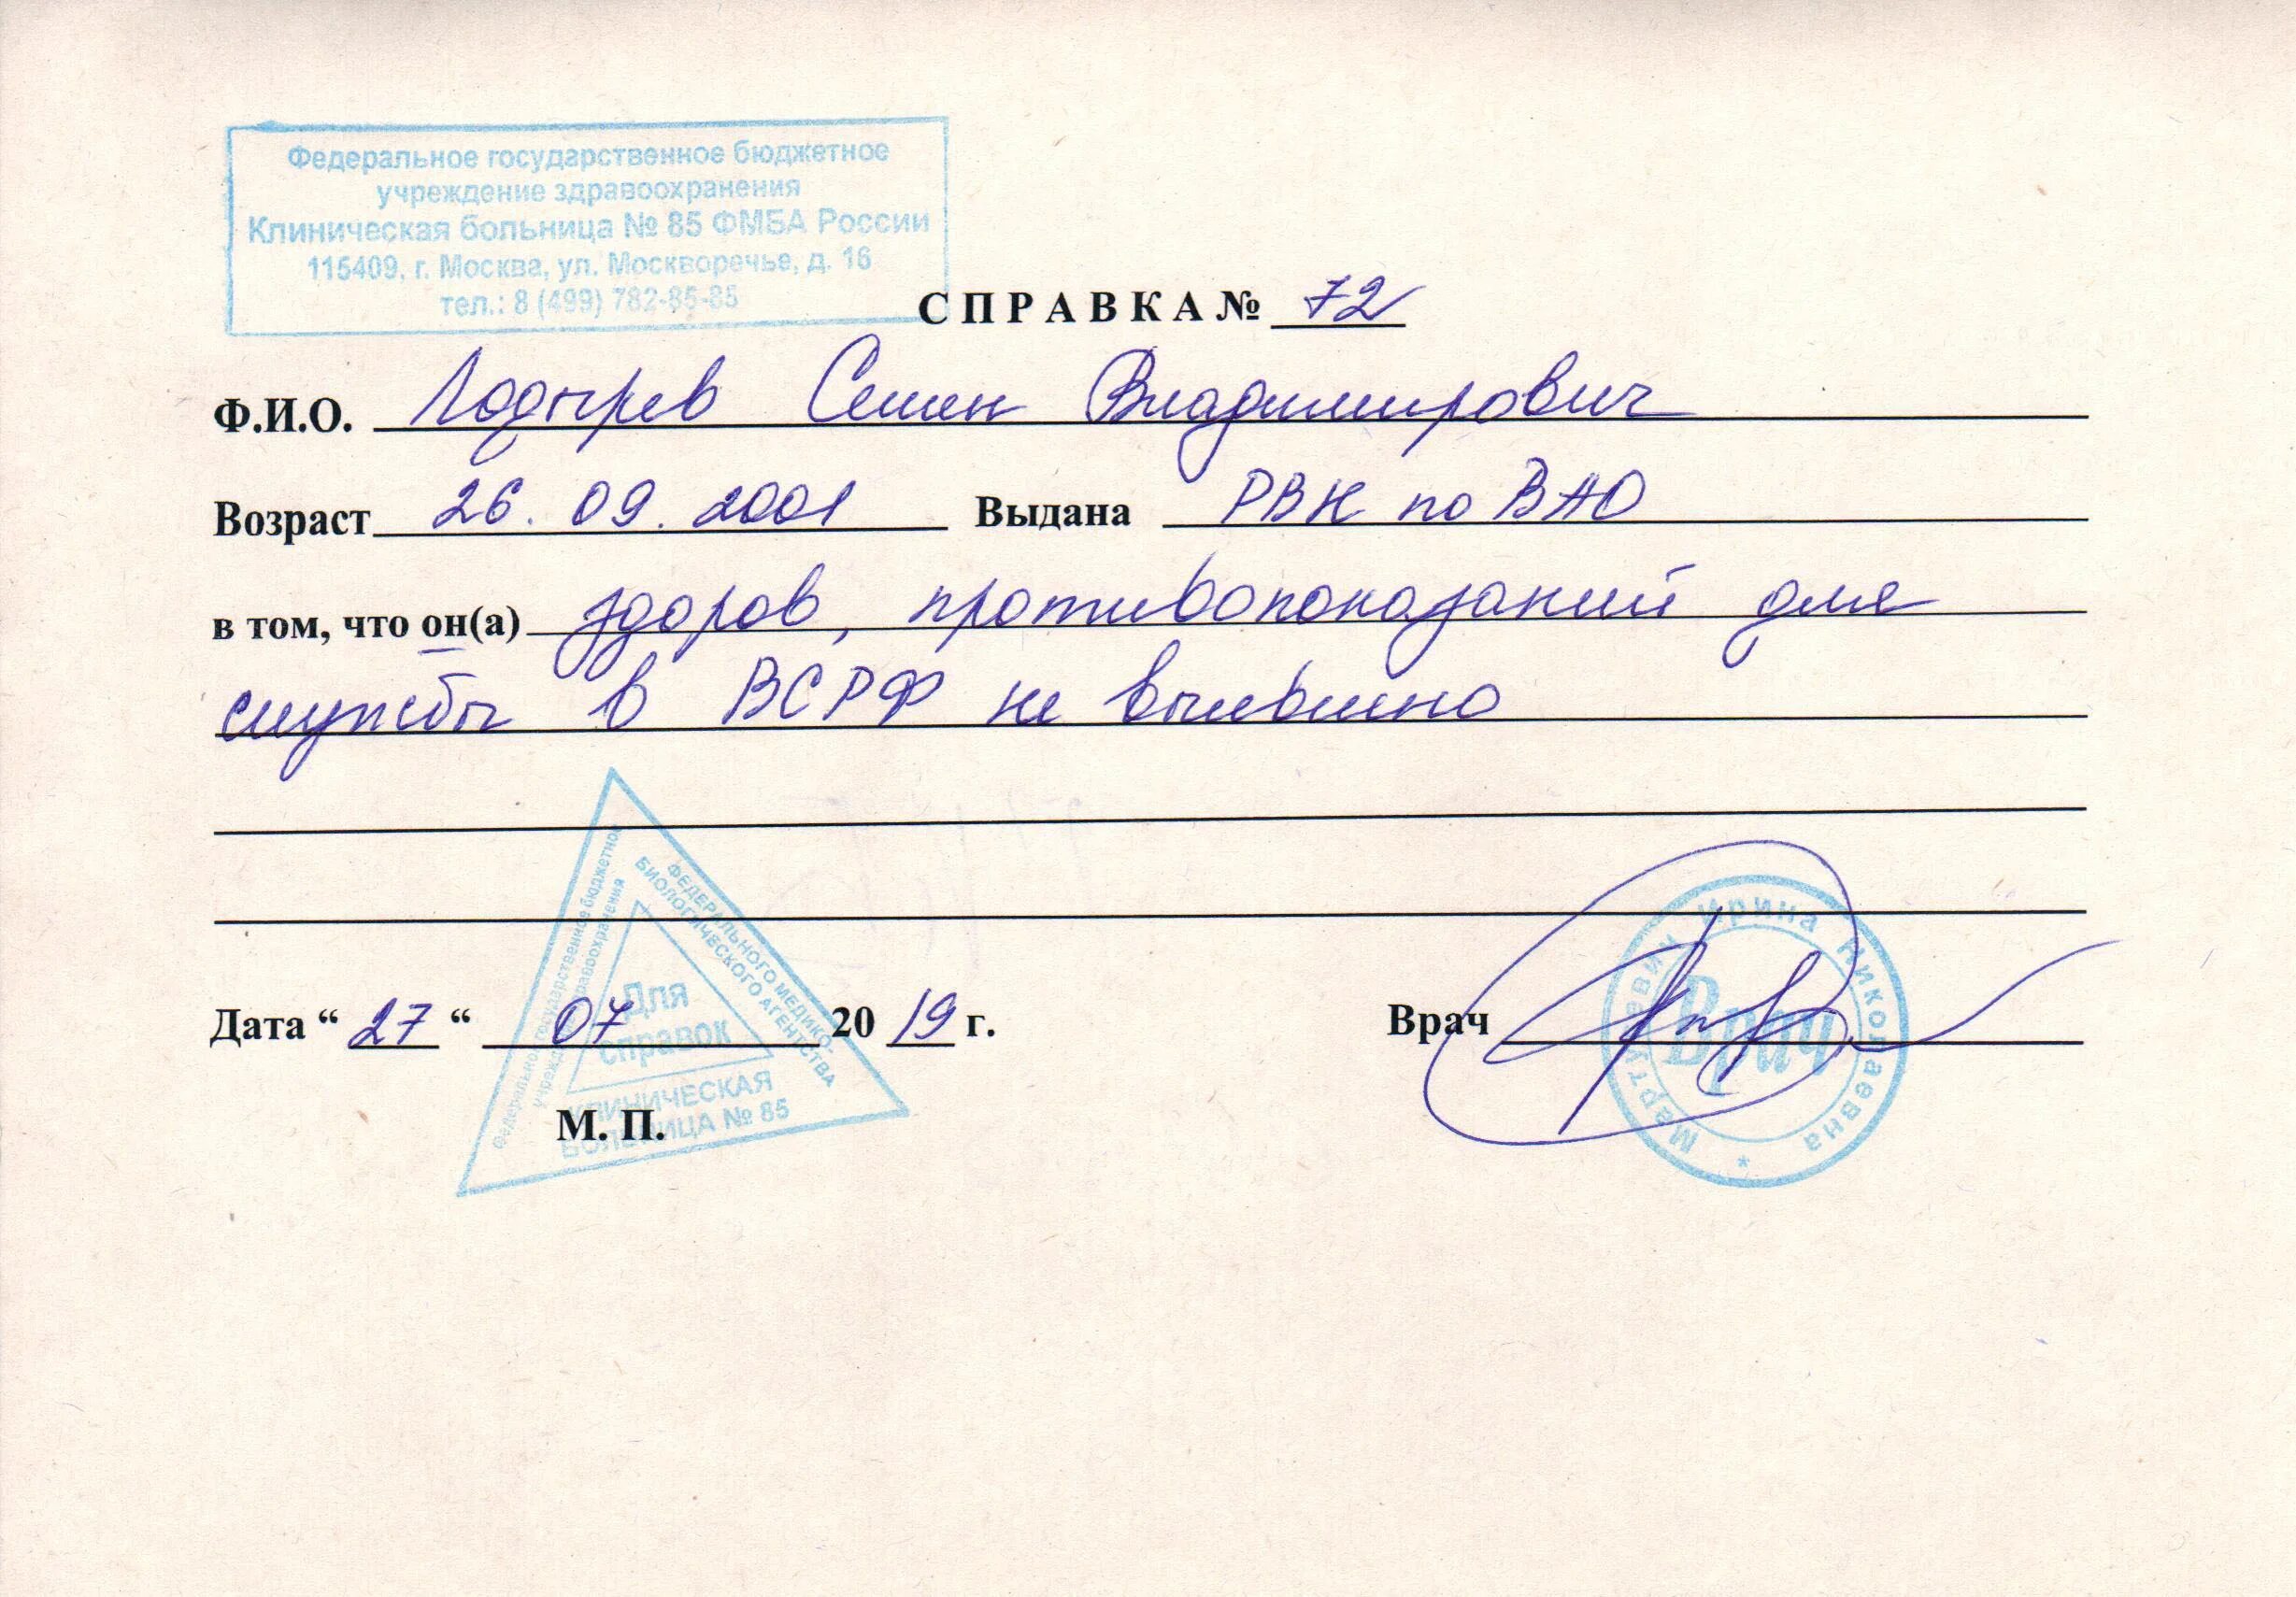 Федеральное государственное бюджетное
учреждение здравоохранения
Клиническая больница № 85 ФМБА России
115409, г. Москва, ул. Москворечье, д. 16
тел.: 8 (499) 782-85-85
СПРАВКА № 72
Ф.И.О. Лодырев Семен Владимирович
Возраст 26.09.2001 Выдана РВК по ВАО
в том, что он(а) здоров, противопоказаний для
службы в ВСРФ не выявлено
Федеральное государственное бюджетное
учреждение здравоохранения
ФЕДЕРАЛЬНОГО МЕДИКО-
БИОЛОГИЧЕСКОГО АГЕНТСТВА
Для
справок
КЛИНИЧЕСКАЯ
БОЛЬНИЦА № 85
Дата “ 27 “ 07 20 19 г.
Врач
Ирина Николаевна
Врач
М. П.